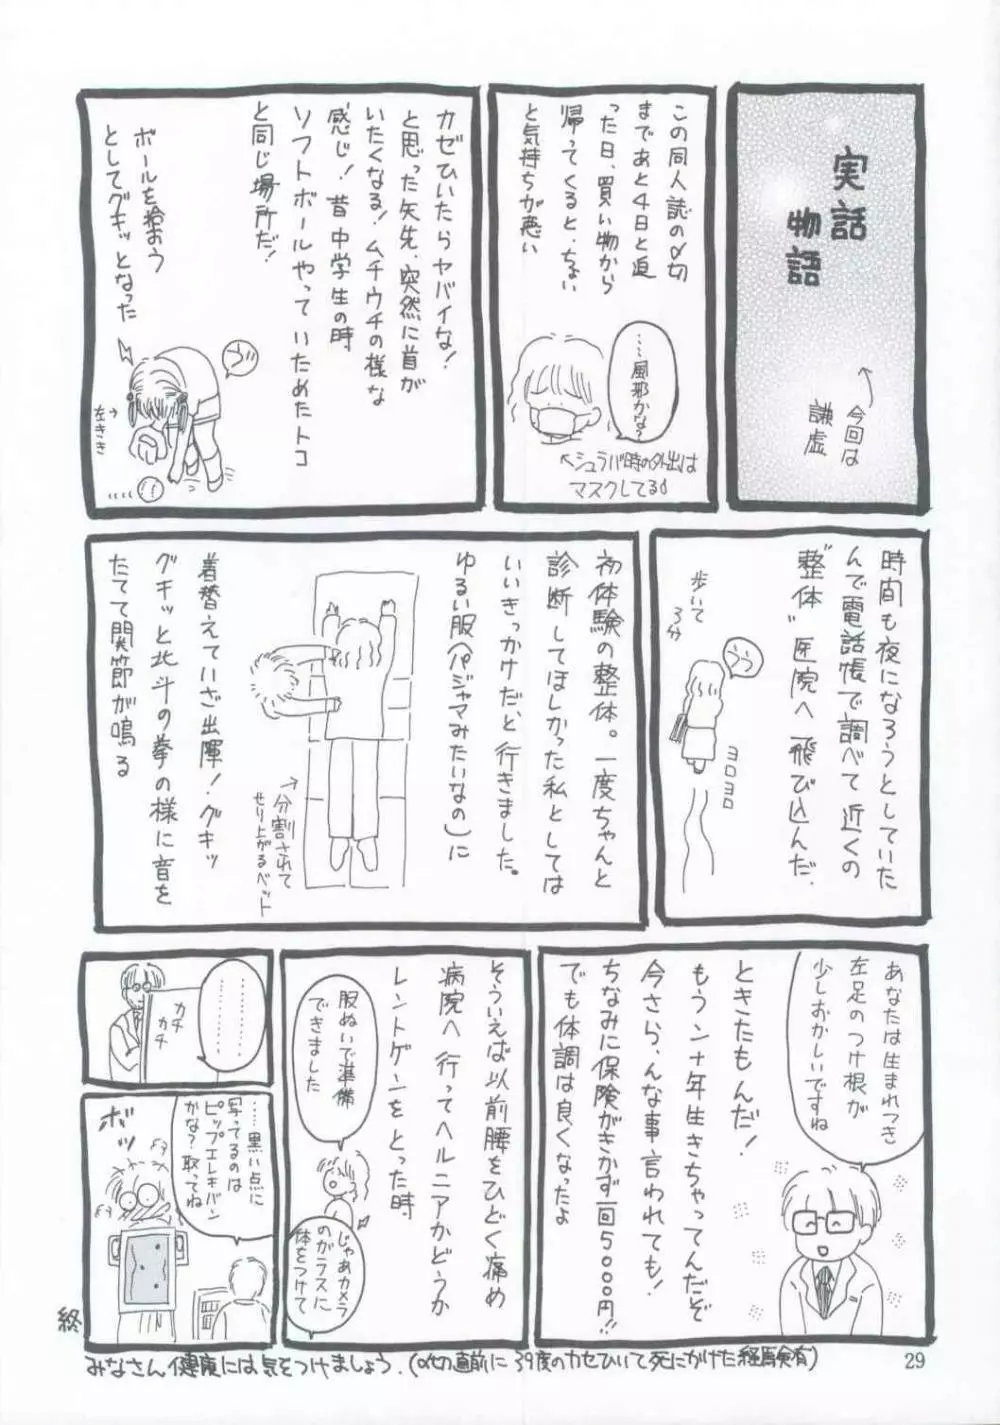 実話
物語
↑今回は
謙虚
この同人誌の〆切
まであと4日と迫
った日、買い物から
帰ってくると、ちょい
と気持ちが悪い
……風邪かな?
↑シュラバ時の外出は
マスクしてるの
カゼひいたらヤバイな!
と思った矢先、突然に首が
いたくなる!ムチウチの様な
感じ!昔中学生の時
ソフトボールやっていためたトコ
と同じ場所だ!
ボールを拾おう
としてグキッとなった
うっ
左きき→
時間も夜になろうとしていた
んで電話帳で調べて近くの
"整体"医院へ飛び込んだ.
歩いて
3分
うう
ヨロヨロ
初体験の整体。一度ちゃんと
診断してほしかった私としては
いいきっかけだ、と行きました。
ゆるい服(パジャマみたいなの)に
↑分割されて
せり上がるベット
着替えていざ出陣!グキッ
グキッと北斗の拳の様に音を
たてて関節が鳴る
あなたは生まれつき
左足のつけ根が
少しおかしいですね
ときたもんだ!
もうン十年生きちゃってんだぞ
今さら、んな事言われても!
ちなみに保険がきかず一回5000円!!
でも体調は良くなったよ
そういえば以前腰をひどく痛め
病院へ行ってヘルニアかどうか
レントゲンをとった時
服ぬいで準備
できました
じゃあカメラ
のガラスに
体をつけて
…………
………
カチ
カチ
……黒い点に
写ってるのは
ピップエレキバン
かな?取ってね
ボッ
終
みなさん健康には気をつけましょう.(〆切直前に39度のカゼひいて死にかけた経験有)
29